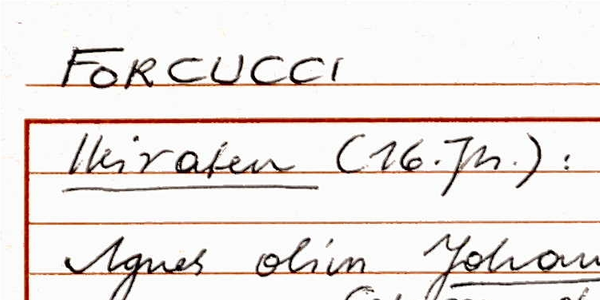 FORCUCCI
Heiraten (16. Jh.):
Agnes olim